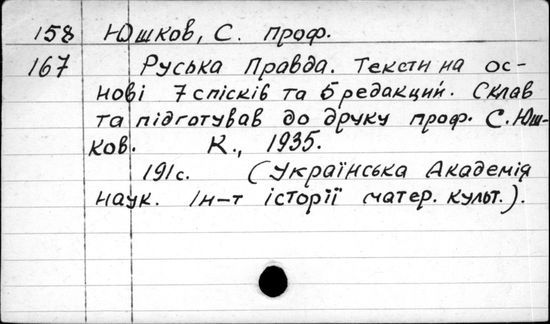 158 Юшков, С. проф.
167 Руська Правда. Тексти на ос-
нові 7 спісків та 5 редакций. Склав
та підготував до друку проф. С. Юш-
ков. К., 1935.
191 с. (Українська Академія
наук. Ін-т історії матер. культ.).